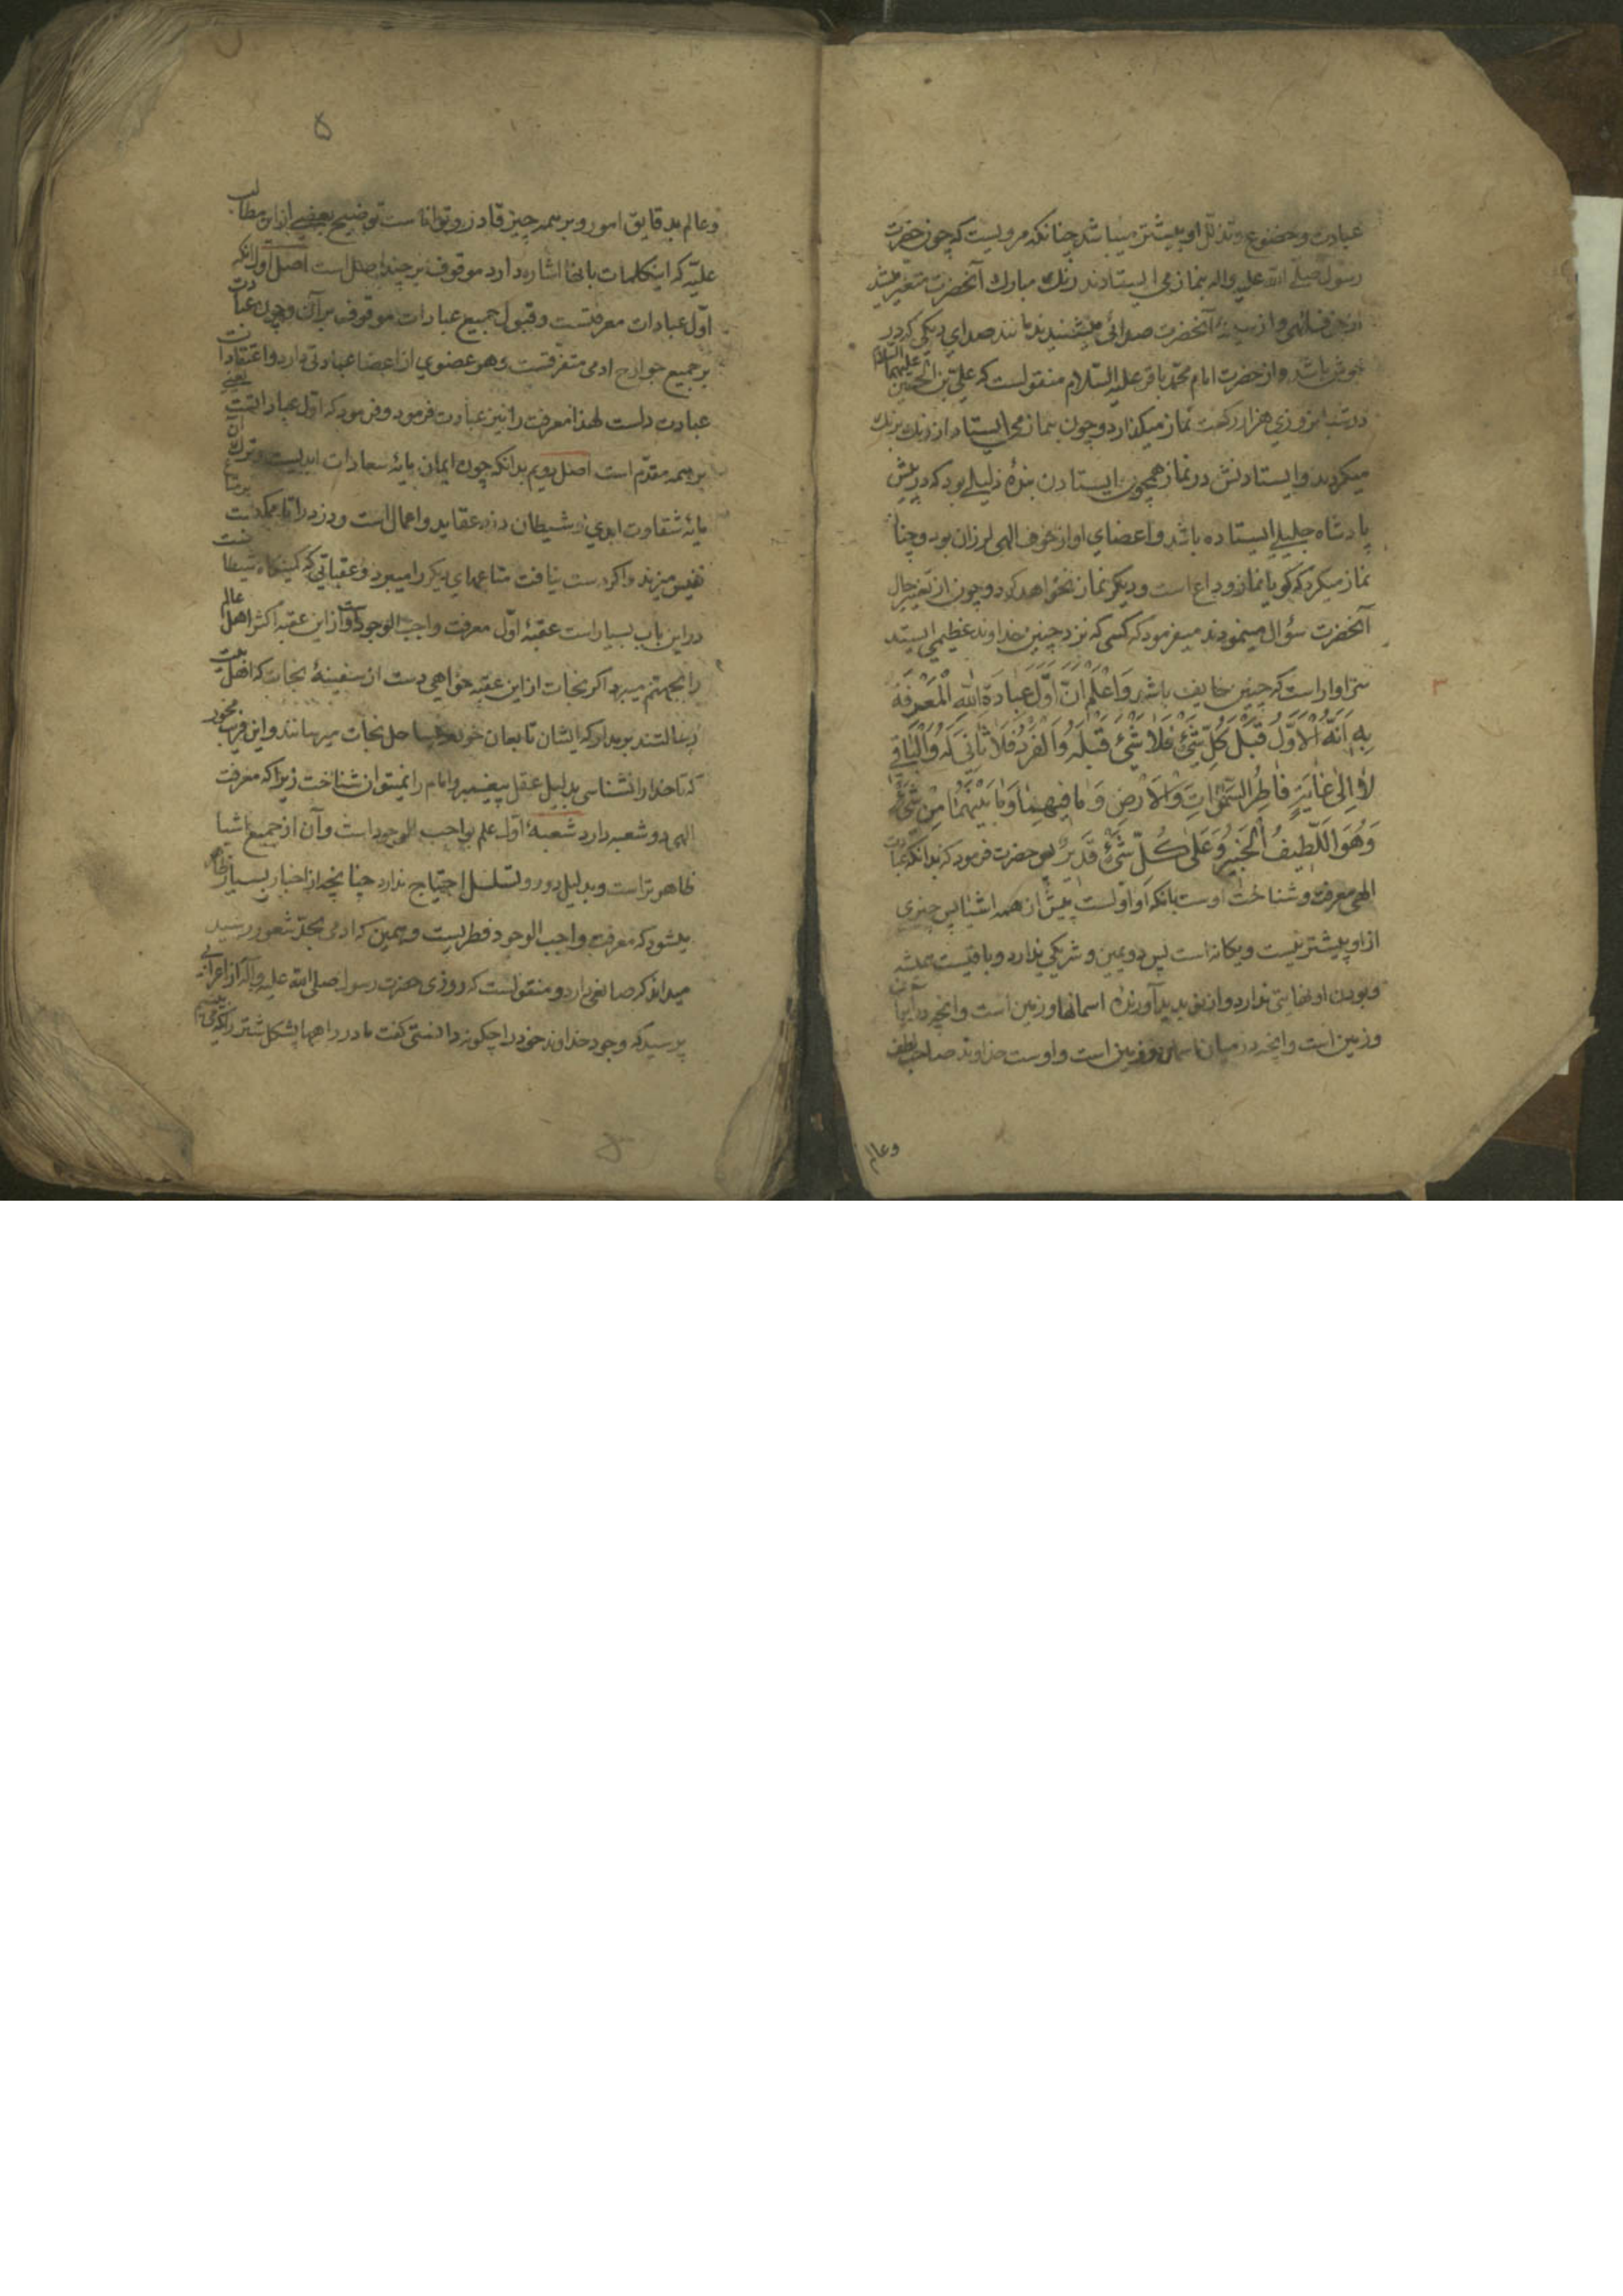 عبادت و خضوع و تذلّل او بیشتر میباشد چنانکه مرویست که چون حضرت
رسول صلّی الله علیه واله بنماز می ایستادند رنك مبارك آنحضرت متغیّر میشد
از خوف الهی و از سینهٔ آنحضرت صدائی میشنیدند مانند صدای دیکی که در
جوش باشد و از حضرت امام محمّد باقر علیه السّلام منقولست که علیّ بن الحسین علیهما السّلام
در شبانروزی هزار رکعت نماز میکذارد و چون بنماز می ایستاد از رنك برنك
میکردید و ایستادنش در نماز همچون ایستادن بندهٔ ذلیلی بود که در پیش
پادشاه جلیلی ایستاده باشد و اعضای او از خوف الهی لرزان بود و چنان
نماز میکرد که کویا نماز وداع است و دیکر نماز نخواهد کرد و چون از تغیّر حال
آنحضرت سؤال مینمودند میفرمود که کسی که نزد چنین خداوند عظیمی ایستد
سزاوار است که چنین خایف باشد وَاعْلَمْ اَنَّ اَوَّلَ عِبَادَةِ اللّهِ الْمَعْرِفَةُ
بِهِ اَنَّهُ الْاَوَّلُ قَبْلَ كُلِّ شَیْءٍ فَلَا شَیْءَ قَبْلَهُ وَالْفَرْدُ فَلَا ثَانِیَ لَهُ وَالْبَاقِی
لَا اِلٰی غَایَةٍ فَاطِرُ السَّمٰوَاتِ وَالْاَرْضِ وَمَا فِیهِمَا وَمَا بَیْنَهُمَا مِنْ شَیْءٍ
وَهُوَ اللَّطِیفُ الْخَبِیرُ وَعَلٰی كُلِّ شَیْءٍ قَدِیرٌ پس حضرت فرمود که بدانکه اوّل عبادت
الهی معرفت و شناخت اوست بانکه او اوّلست پیش از همه اشیا پس چیزی
از او پیشتر نیست و یکانه است پس دویمین و شریکی ندارد و باقیست همیشه
و بودن او نهایتی ندارد و از نو پدید آورندهٔ اسمانها و زمین است و انچه در آسمان
و زمین است و انچه در میان اسمان و زمین است و اوست خداوند صاحب لطف
وعالم
۵
وعالم بدقایق امور و بر همه چیز قادر و توانا است توضیح بعضی از این مطالب
علیّه که اینکلمات بانها اشاره دارد موقوف بر چند اصل است اصل اوّل انکه
اوّل عبادات معرفتست و قبول جمیع عبادات موقوف بر آن و چون عبادت
بر جمیع جوارح ادمی متفرّقست و هر عضوی از اعضا عبادتی دارد و اعتقادات
عبادت دلست لهذا معرفت را نیز عبادت فرمود و فرمود که اوّل عباداتست یعنی
بر همه مقدّم است اصل دویم بدانکه چون ایمان مایهٔ سعادات ابدیست و ترك آن
مایهٔ شقاوت ابدی و شیطان دزد عقاید و اعمال است و دزد را تا ممکنست بر متاع
نفیس میزند و اکر دست نیافت متاعهای دیکر را میبرد و عقباتی که کمینکاه شیطانست
در این باب بسیار است عقبهٔ اوّل معرفت واجب الوجود است و از این عقبه اکثر اهل عالم
را بجهنّم میبرد اکر نجات از این عقبه خواهی دست از سفینهٔ نجات که اهل بیت
رسالتند بر مدار که ایشان تابعان خود را بساحل نجات میرسانند و این فریب مخور
که تا خدا را نشناسی بدلیل عقل پیغمبر و امام را نمیتوان شناخت زیرا که معرفت
الهی دو شعبه دارد شعبهٔ اوّل علم بواجب الوجود است و آن از جمیع اشیا
ظاهرتر است و بدلیل دور و تسلسل احتیاج ندارد چنانچه از اخبار بسیار ظاهر
میشود که معرفت واجب الوجود فطریست و همین که ادمی بحدّ شعور رسید
میداند که صانعی دارد و منقولست که روزی حضرت رسول صلی الله علیه وآله از اعرابی
پرسید که وجود خداوند خود را چکونه دانستی کفت ما در راهها پشکل شتر را که می بینیم